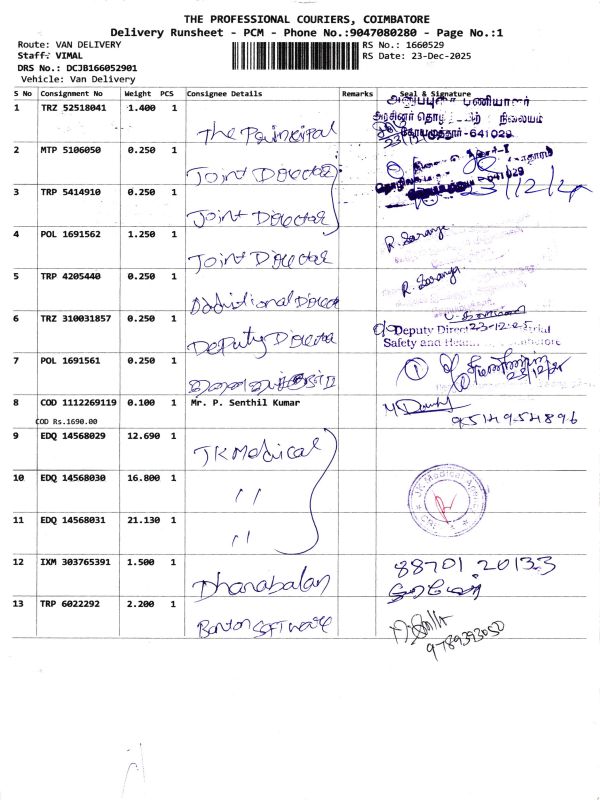 THE PROFESSIONAL COURIERS, COIMBATORE
Delivery Runsheet - PCM - Phone No.:9047080280 - Page No.:1
Route: VAN DELIVERY
RS No.: 1660529
Staff: VIMAL
RS Date: 23-Dec-2025
DRS No.: DCJB166052901
Vehicle: Van Delivery
S No Consignment No Weight PCS Consignee Details Remarks Seal & Signature
1 TRZ 52518041 1.400 1 The Principal
பணியாளர்
நிலையம்
கோயமுத்தூர்-641029
2 MTP 5106050 0.250 1 Joint Director
3 TRP 5414910 0.250 1 Joint Director 23/12/24
4 POL 1691562 1.250 1 Joint Director R. Saranya
5 TRP 4205440 0.250 1 Additional Director R. Saranya
6 TRZ 310031857 0.250 1 Deputy Director
Deputy Direct 23-12-25
Safety and Hea
7 POL 1691561 0.250 1
8 COD 1112269119 0.100 1 Mr. P. Senthil Kumar
COD Rs.1690.00
9514954896
9 EDQ 14568029 12.690 1 JK Medical
10 EDQ 14568030 16.800 1 "
JK Medical
11 EDQ 14568031 21.130 1 "
12 IXM 303765391 1.500 1 Dhanabalan 88701 20133
13 TRP 6022292 2.200 1 Bonton software
9789393050